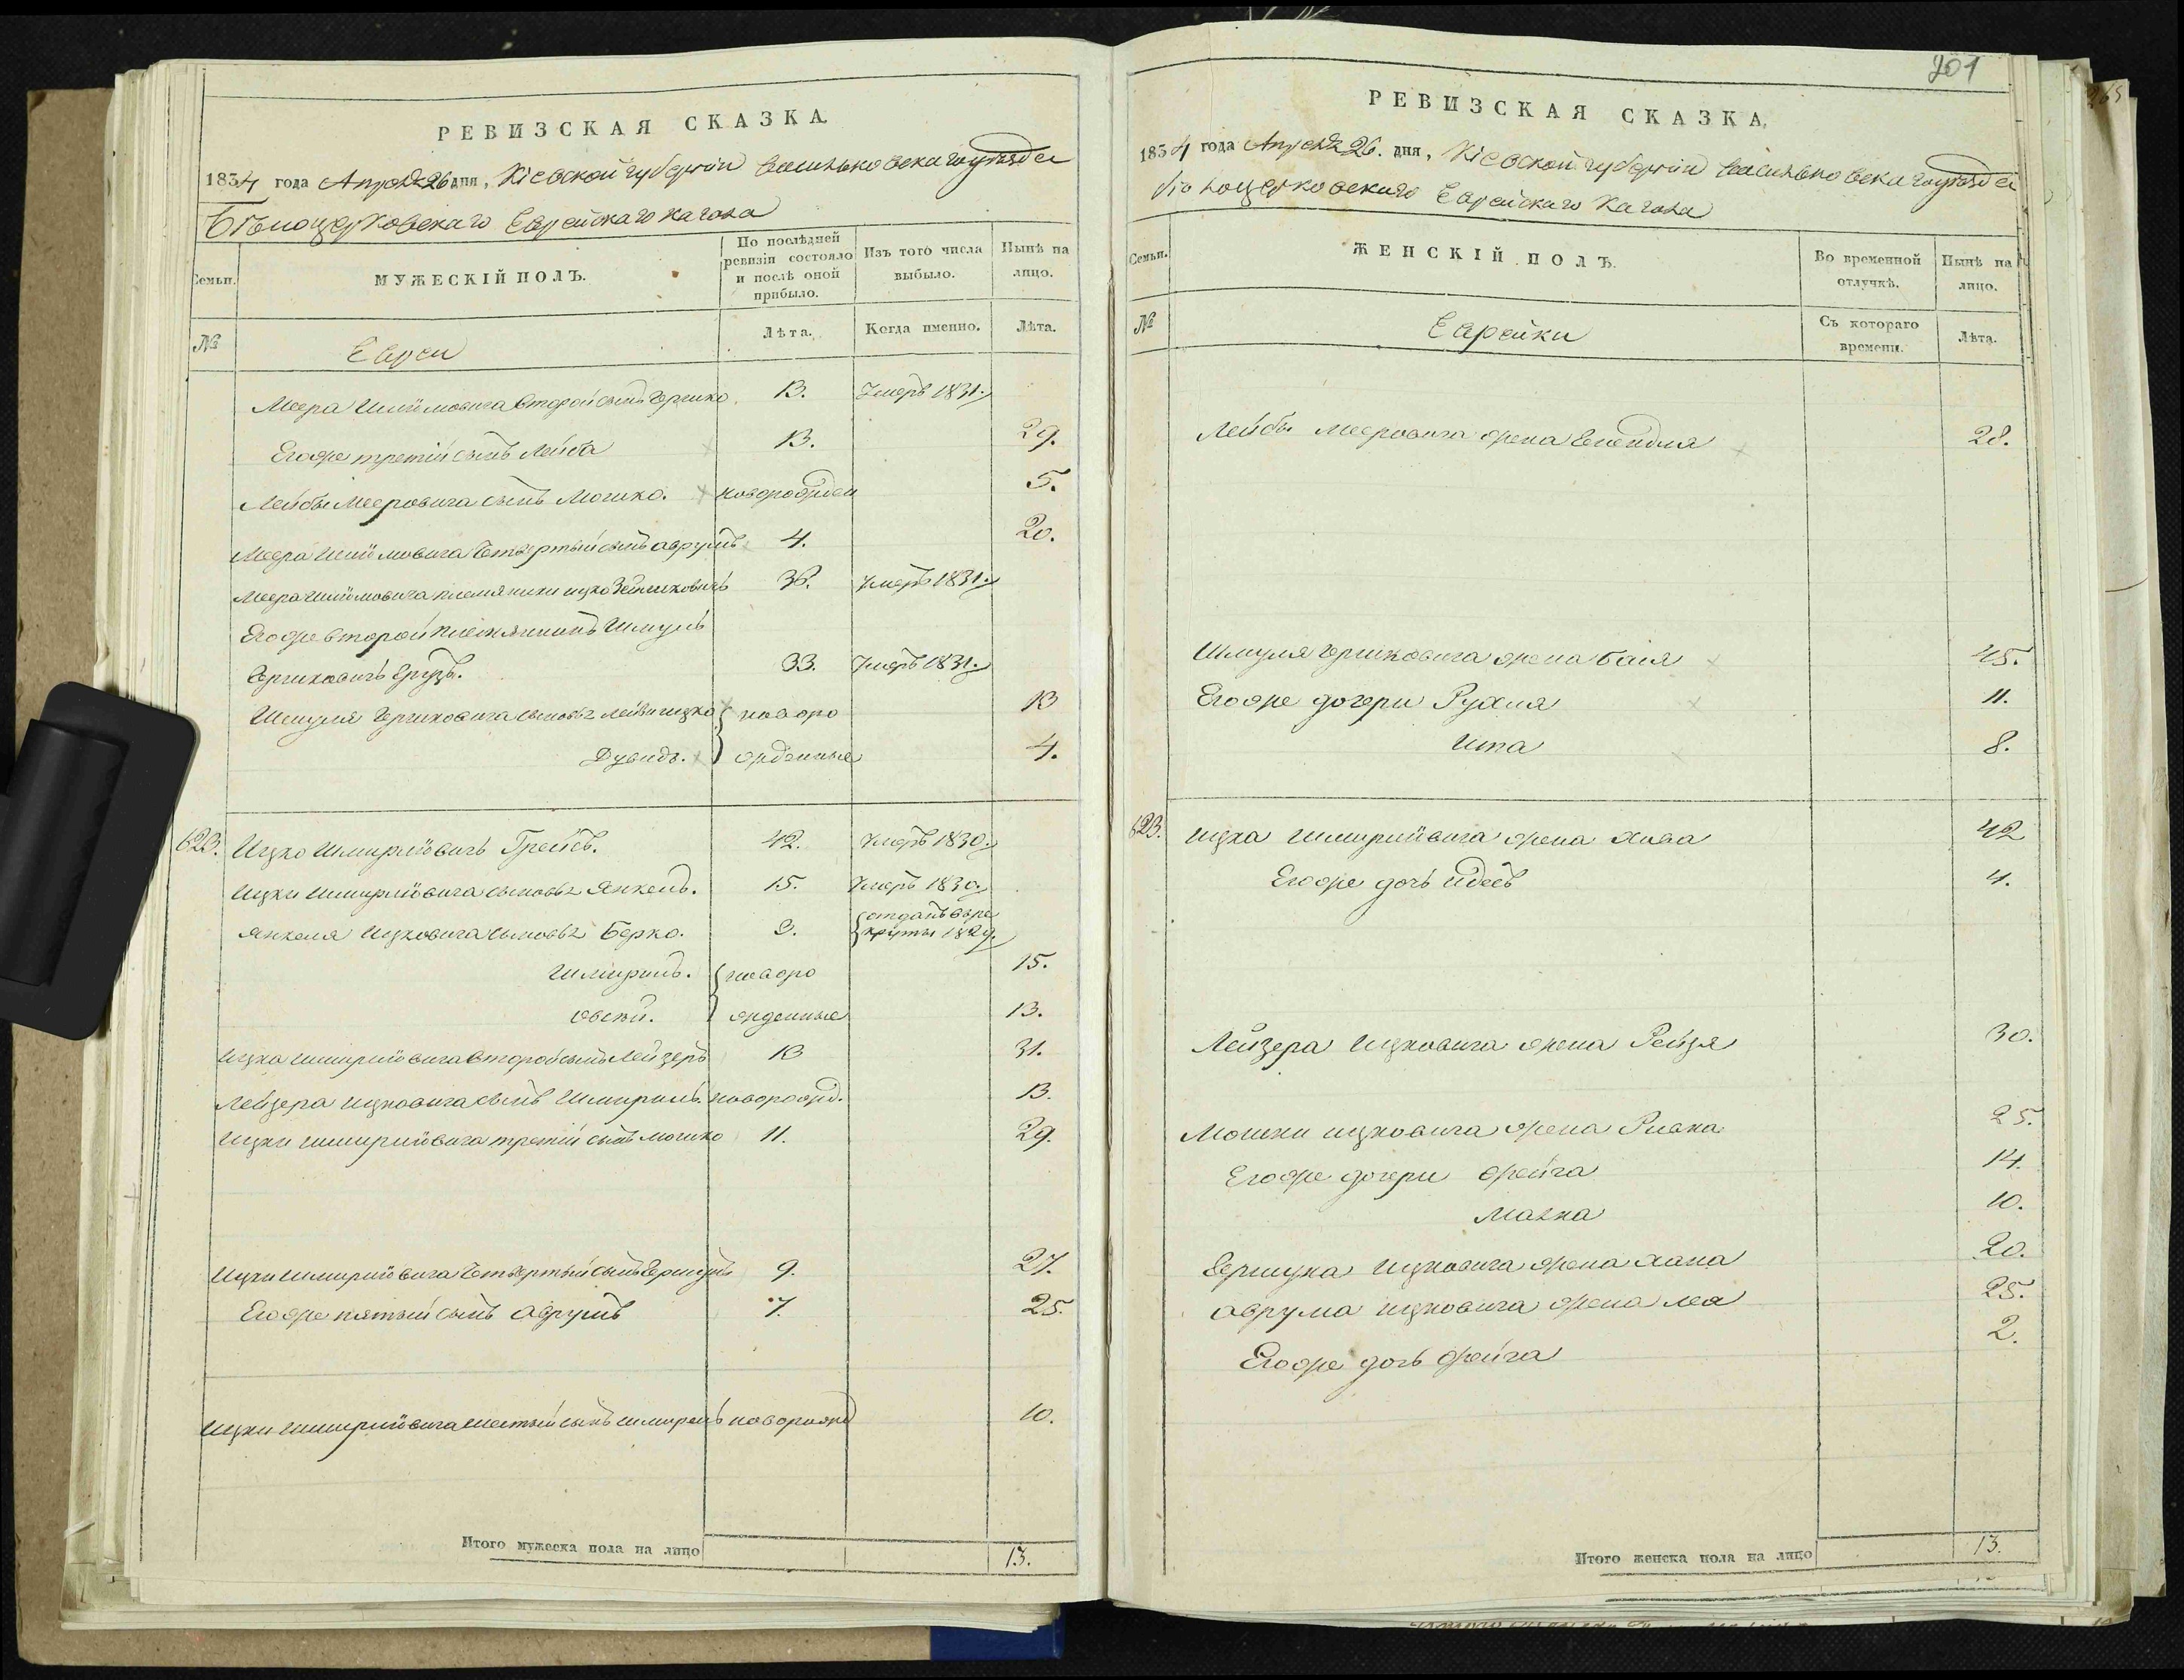 РЕВИЗСКАЯ СКАЗКА
1834 года Апреля 26 дня, Кіевской губерніи Васильковскаго уѣзда
Бѣлоцерковскаго Еврейскаго Кагала
Семьи.
МУЖЕСКІЙ ПОЛЪ.
По послѣдней ревизіи состояло и послѣ оной прибыло.
Изъ того числа выбыло.
Нынѣ на лицо.
№
Евреи
Лѣта.
Когда именно.
Лѣта.
Меера Шліомовича второй сынъ Гершко 13. Умеръ 1831.
Егоже третій сынъ Лейба 13. 29.
Лейбы Мееровича сынъ Мошко. новорожден 5.
Меера Шліомовича Четвертый сынъ Аврумъ 4. 20.
Меера Шліомовича племяники Ицко 36. Умеръ 1831.
Егоже второй племянникъ Шмуль
Гершковичъ 33. Умеръ 1831.
Шмуля Гершковича сыновья Лейвиицко новоро 13
Дувидъ. жденные 4.
623. Ицко Шмирліовичъ 42. Умеръ 1830.
Ицки Шмирліовича сыновья Янкель. 15. Умеръ 1830.
Янкеля Ицковича сыновья Берко. 3. отданъ въре
круты 1829.
Шмириль. новоро 15.
Овсѣй. жденные 13.
Ицка Шмирліовича второй сынъ Лейзеръ 13 31.
Лейзера Ицковича сынъ Шмириль. новорожд. 13.
Ицки Шмирліовича третій сынъ Мошко 11. 29.
Ицки Шмирліовича Четвертый сынъ 9. 27.
Егоже пятый сынъ Аврумъ 7. 25.
Ицки Шмирліовича шестый сынъ новорожд 10.
Итого мужеска пола на лицо 13.
201
РЕВИЗСКАЯ СКАЗКА,
1834 года Апреля 26. дня, Кіевской губерніи Васильковскаго уѣзда
Бѣлоцерковскаго Еврейскаго Кагала
Семьи.
ЖЕНСКІЙ ПОЛЪ.
Во временной отлучкѣ.
Нынѣ на лицо.
№
Еврейки
Съ котораго времени.
Лѣта.
Лейбы Мееровича жена 28.
Шмуля Гершковича жена Бася 45.
Егоже дочери Рухля 11.
Ита 8.
623. Ицка Шмирліовича жена Хава 42
Егоже дочь Идесъ 4.
Лейзера Ицковича жена Рейзя 30.
Мошки Ицковича жена Ривка 25.
Егоже дочери Фейга 14.
Малка 10.
Гершука Ицковича жена Хана 20.
Аврума Ицковича жена Леа 25.
Егоже дочь Фейга 2.
Итого женска пола на лицо 13.